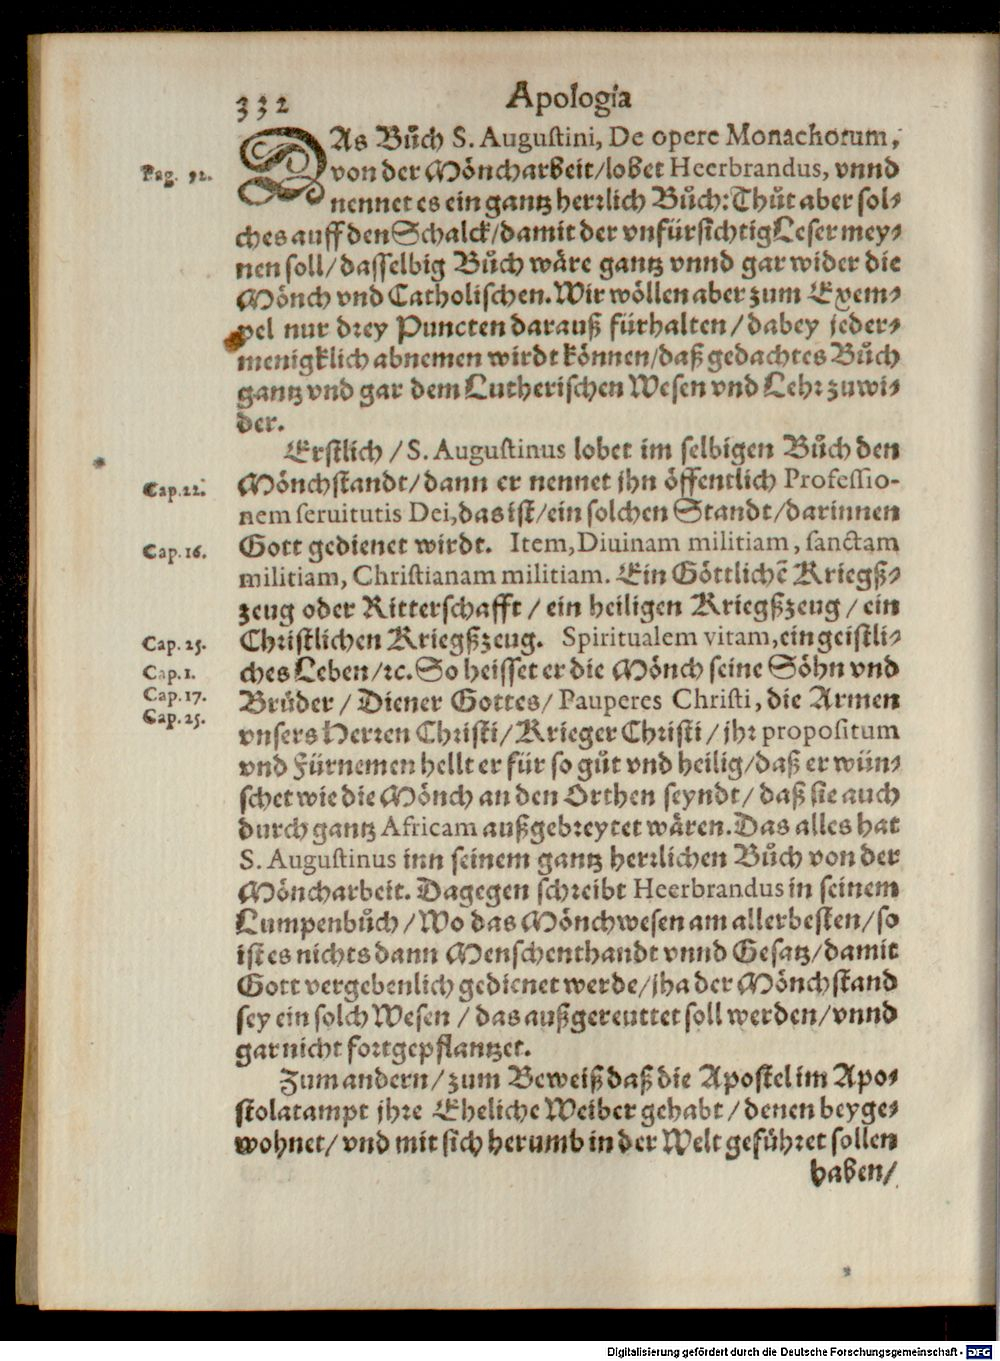 332
Apologia
DAs Bůch S. Augustini, De opere Monachorum,
Pag. 92.
von der Möncharbeit/lobet Heerbrandus, vnnd
nennet es ein gantz herrlich Bůch: Thůt aber sol⸗
ches auff den Schalck/damit der vnfürsichtig Leser mey⸗
nen soll/dasselbig Bůch wäre gantz vnnd gar wider die
Mönch vnd Catholischen. Wir wöllen aber zum Exem⸗
pel nur drey Puncten darauß fürhalten/dabey jeder⸗
menigklich abnemen wirdt können/daß gedachtes Bůch
gantz vnd gar dem Lutherischen Wesen vnd Lehr zuwi⸗
der.
Erstlich/S. Augustinus lobet im selbigen Bůch den
Cap. 22.
Mönchstandt/dann er nennet jhn öffentlich Professio-
nem seruitutis Dei, das ist/ein solchen Standt/darinnen
Cap. 16.
Gott gedienet wirdt. Item, Diuinam militiam, sanctam
militiam, Christianam militiam. Ein Göttlichẽ Kriegß⸗
zeug oder Ritterschafft/ein heiligen Kriegßzeug/ein
Cap. 25.
Christlichen Kriegßzeug. Spiritualem vitam, ein geistli⸗
Cap. 1.
ches Leben/ꝛc. So heisset er die Mönch seine Söhn vnd
Cap. 17.
Brůder/Diener Gottes/Pauperes Christi, die Armen
Cap. 25.
vnsers Herren Christi/Krieger Christi/jhr propositum
vnd Fürnemen hellt er für so gůt vnd heilig/daß er wün⸗
schet wie die Mönch an den Orthen seyndt/daß sie auch
durch gantz Africam außgebreytet wären. Das alles hat
S. Augustinus inn seinem gantz herrlichen Bůch von der
Möncharbeit. Dagegen schreibt Heerbrandus in seinem
Lumpenbůch/Wo das Mönchwesen am allerbesten/so
ist es nichts dann Menschenthandt vnnd Gesatz/damit
Gott vergebenlich gedienet werde/jha der Mönchstand
sey ein solch Wesen/das außgereuttet soll werden/vnnd
gar nicht fortgepflantzet.
Zum andern/zum Beweiß daß die Apostel im Apo⸗
stolatampt jhre Eheliche Weiber gehabt/denen beyge⸗
wohnet/vnd mit sich herumb in der Welt geführet sollen
haben/
Digitalisierung gefördert durch die Deutsche Forschungsgemeinschaft - DFG